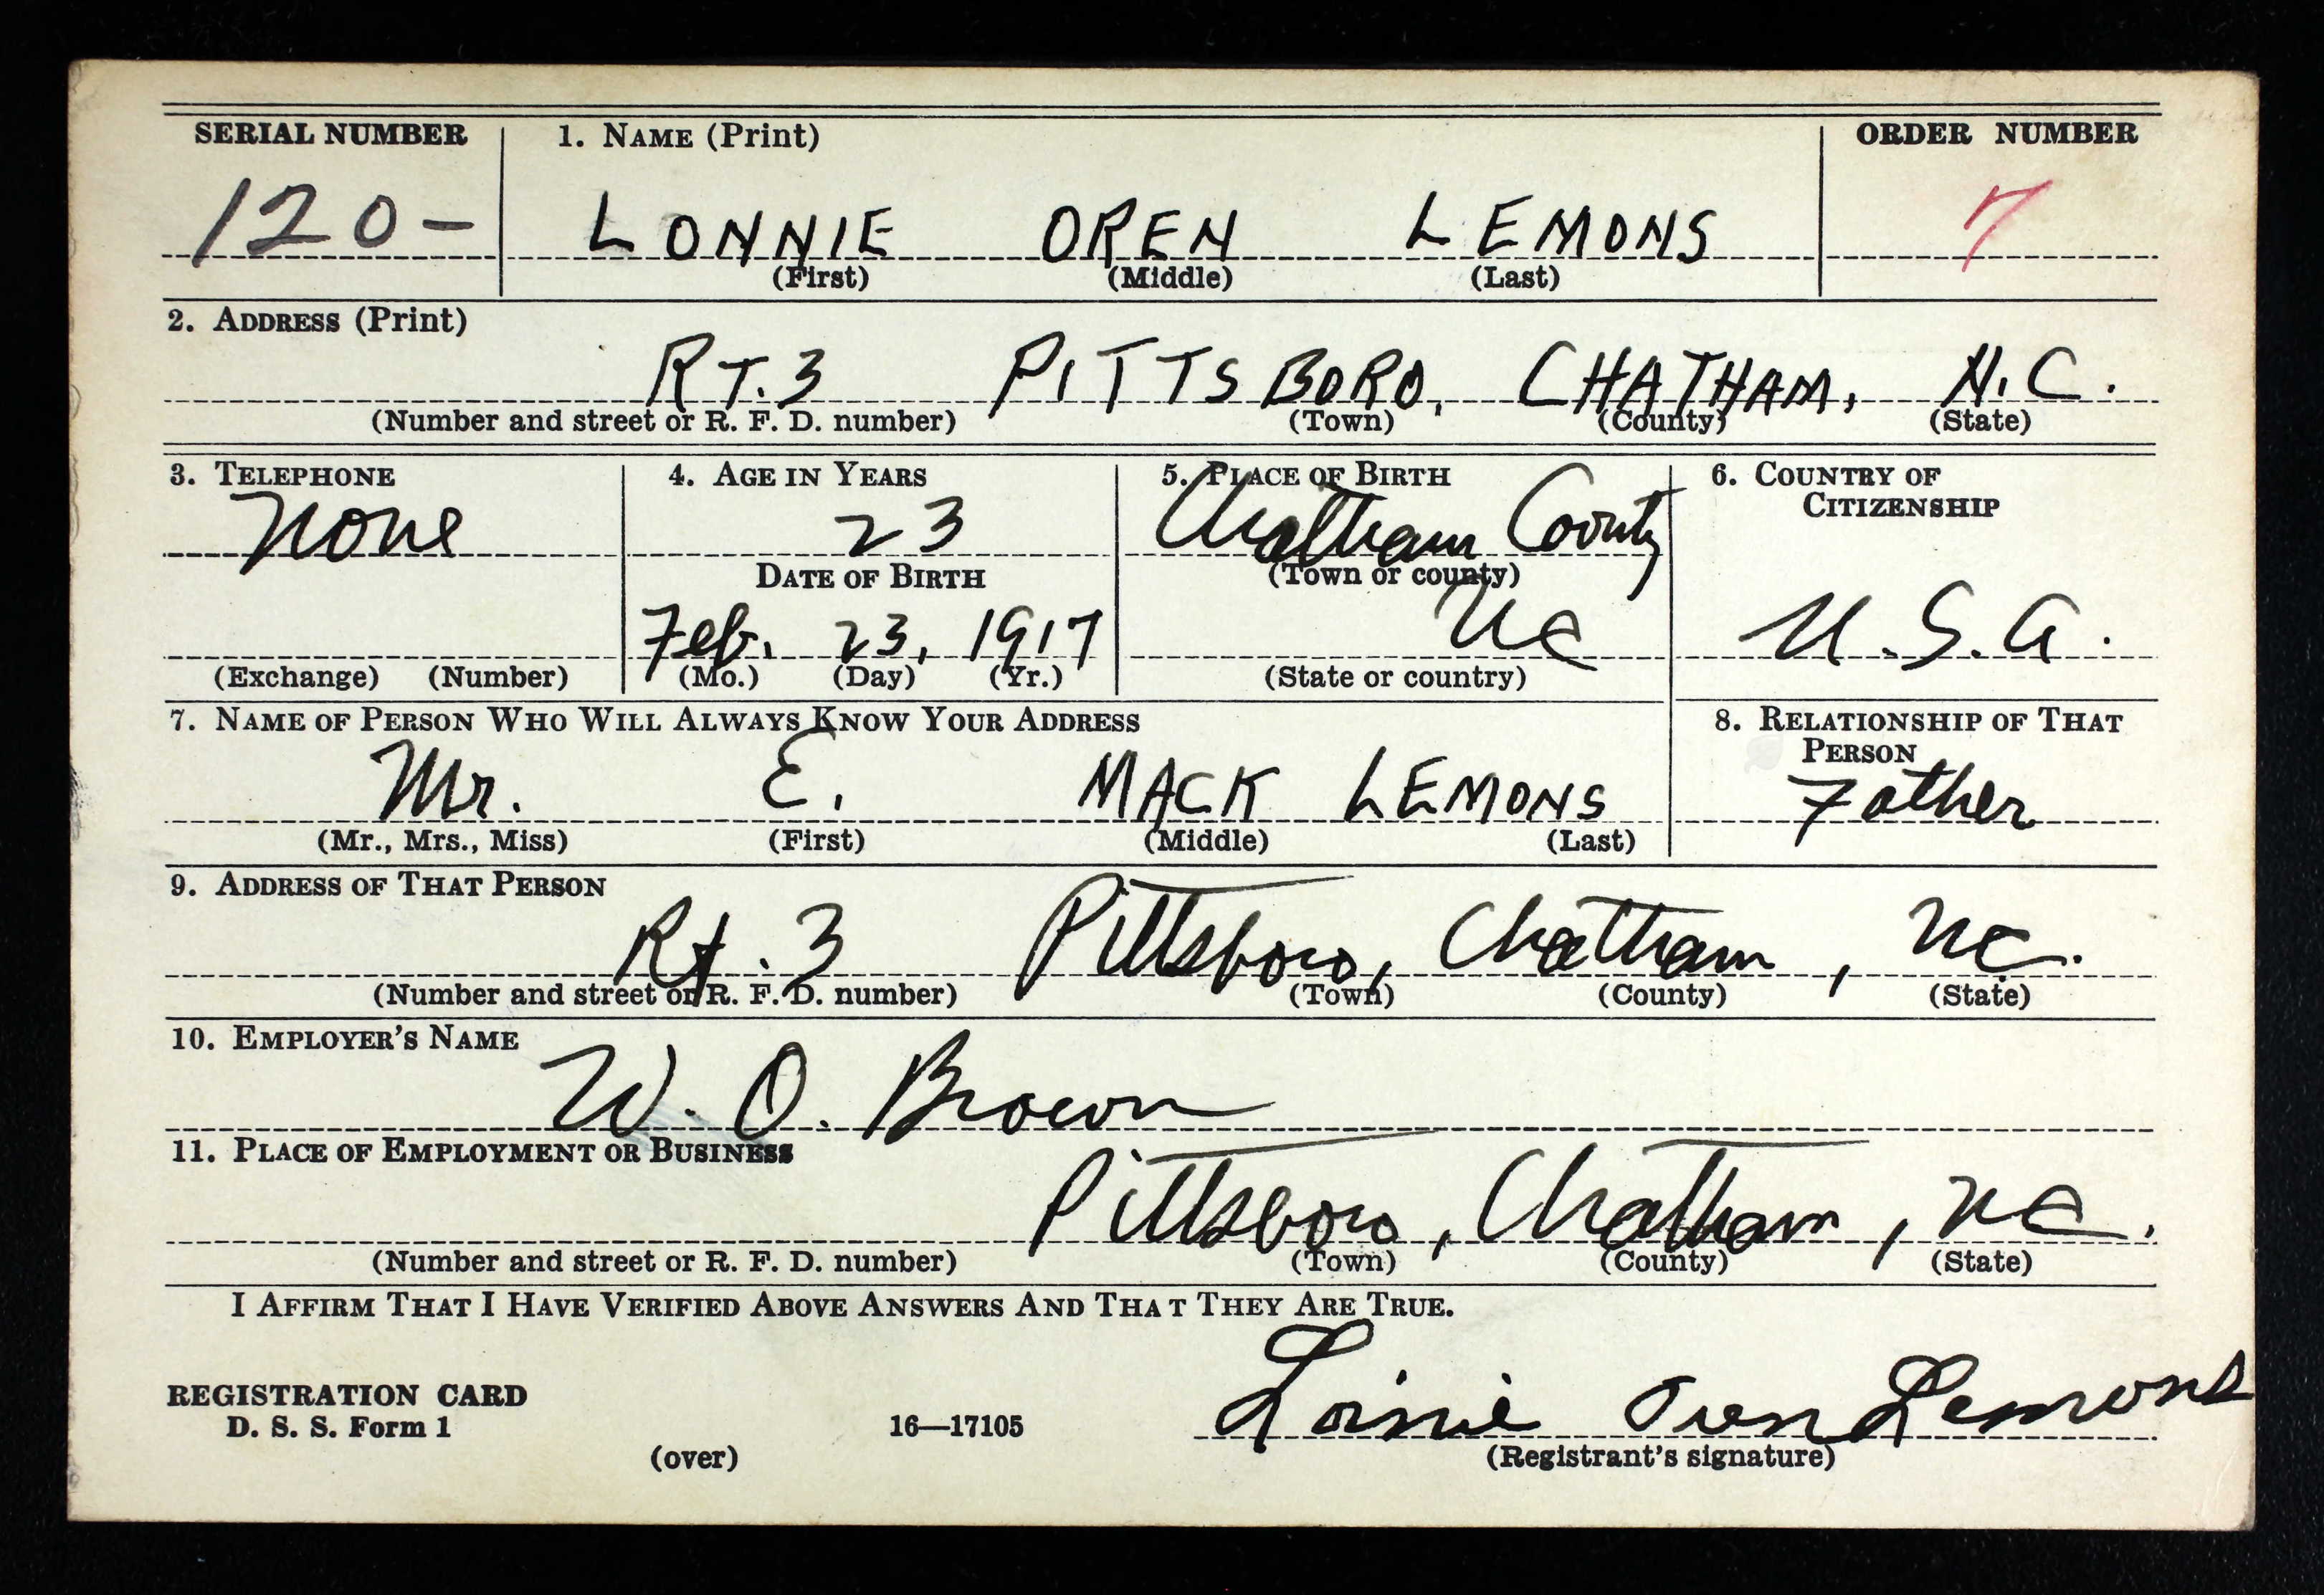 SERIAL NUMBER 1. NAME (Print) ORDER NUMBER
120- LONNIE OREN LEMONS 7
(First) (Middle) (Last)
2. ADDRESS (Print)
RT. 3 PITTSBORO, CHATHAM, N.C.
(Number and street or R. F. D. number) (Town) (County) (State)
3. TELEPHONE 4. AGE IN YEARS 5. PLACE OF BIRTH 6. COUNTRY OF CITIZENSHIP
None 23 Chatham County
DATE OF BIRTH (Town or county)
Feb. 23, 1917 NC U.S.A.
(Exchange) (Number) (Mo.) (Day) (Yr.) (State or country)
7. NAME OF PERSON WHO WILL ALWAYS KNOW YOUR ADDRESS 8. RELATIONSHIP OF THAT PERSON
Mr. E. MACK LEMONS Father
(Mr., Mrs., Miss) (First) (Middle) (Last)
9. ADDRESS OF THAT PERSON
Rt. 3 Pittsboro, Chatham, NC.
(Number and street or R. F. D. number) (Town) (County) (State)
10. EMPLOYER'S NAME
W. O. Brown
11. PLACE OF EMPLOYMENT OR BUSINESS
Pittsboro, Chatham, NC.
(Number and street or R. F. D. number) (Town) (County) (State)
I AFFIRM THAT I HAVE VERIFIED ABOVE ANSWERS AND THAT THEY ARE TRUE.
Lonnie Oren Lemons
REGISTRATION CARD
D. S. S. Form 1 16—17105
(over) (Registrant's signature)